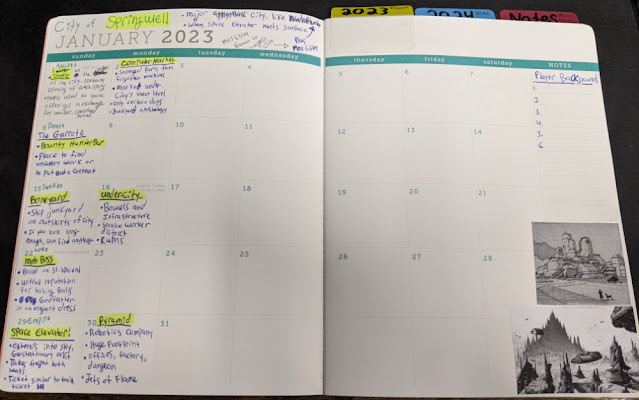 City of Springwell
• Major City, like
• Where space elevator meets surface
JANUARY 2023
2023
2024
Notes
sunday
monday
tuesday
wednesday
thursday
friday
saturday
NOTES
Ancient
of the city, contains
offerings in exchange
for water,
2 Computer Market
• Scavenged parts from
forgotten machines
• market under
City's street level
• only certain days
3
4
5
6
7
Player Backgrounds
1.
2.
3.
4.
5.
6.
8 Death
The Garrote
• Bounty Hunter Bar
• Place to find
unsavory work or
to put out a contract
9
10
11
12
13
14
15 Sunken
Boneyard
• Ship junkyard
on outskirts of city
• If you look long
enough, can find anything
16
undercity
• Bowels and
Infrastructure
• Service worker
district
• Ruins
17
18
19
20
21
22
Mob Boss
• Based on St. Vincent
• Untrue reputation
for taking Balls
• Godfather
in an elegant dress
23
24
25
26
27
28
29 Empire
Space Elevator!
• Extends into sky,
Geostationary orbit
• Takes freight both
ways
• Ticket similar to train
ticket
30 Pyramid
• Robotics company
• Huge Footprint
• offices, factory,
dungeon
• Jets of Flame
31